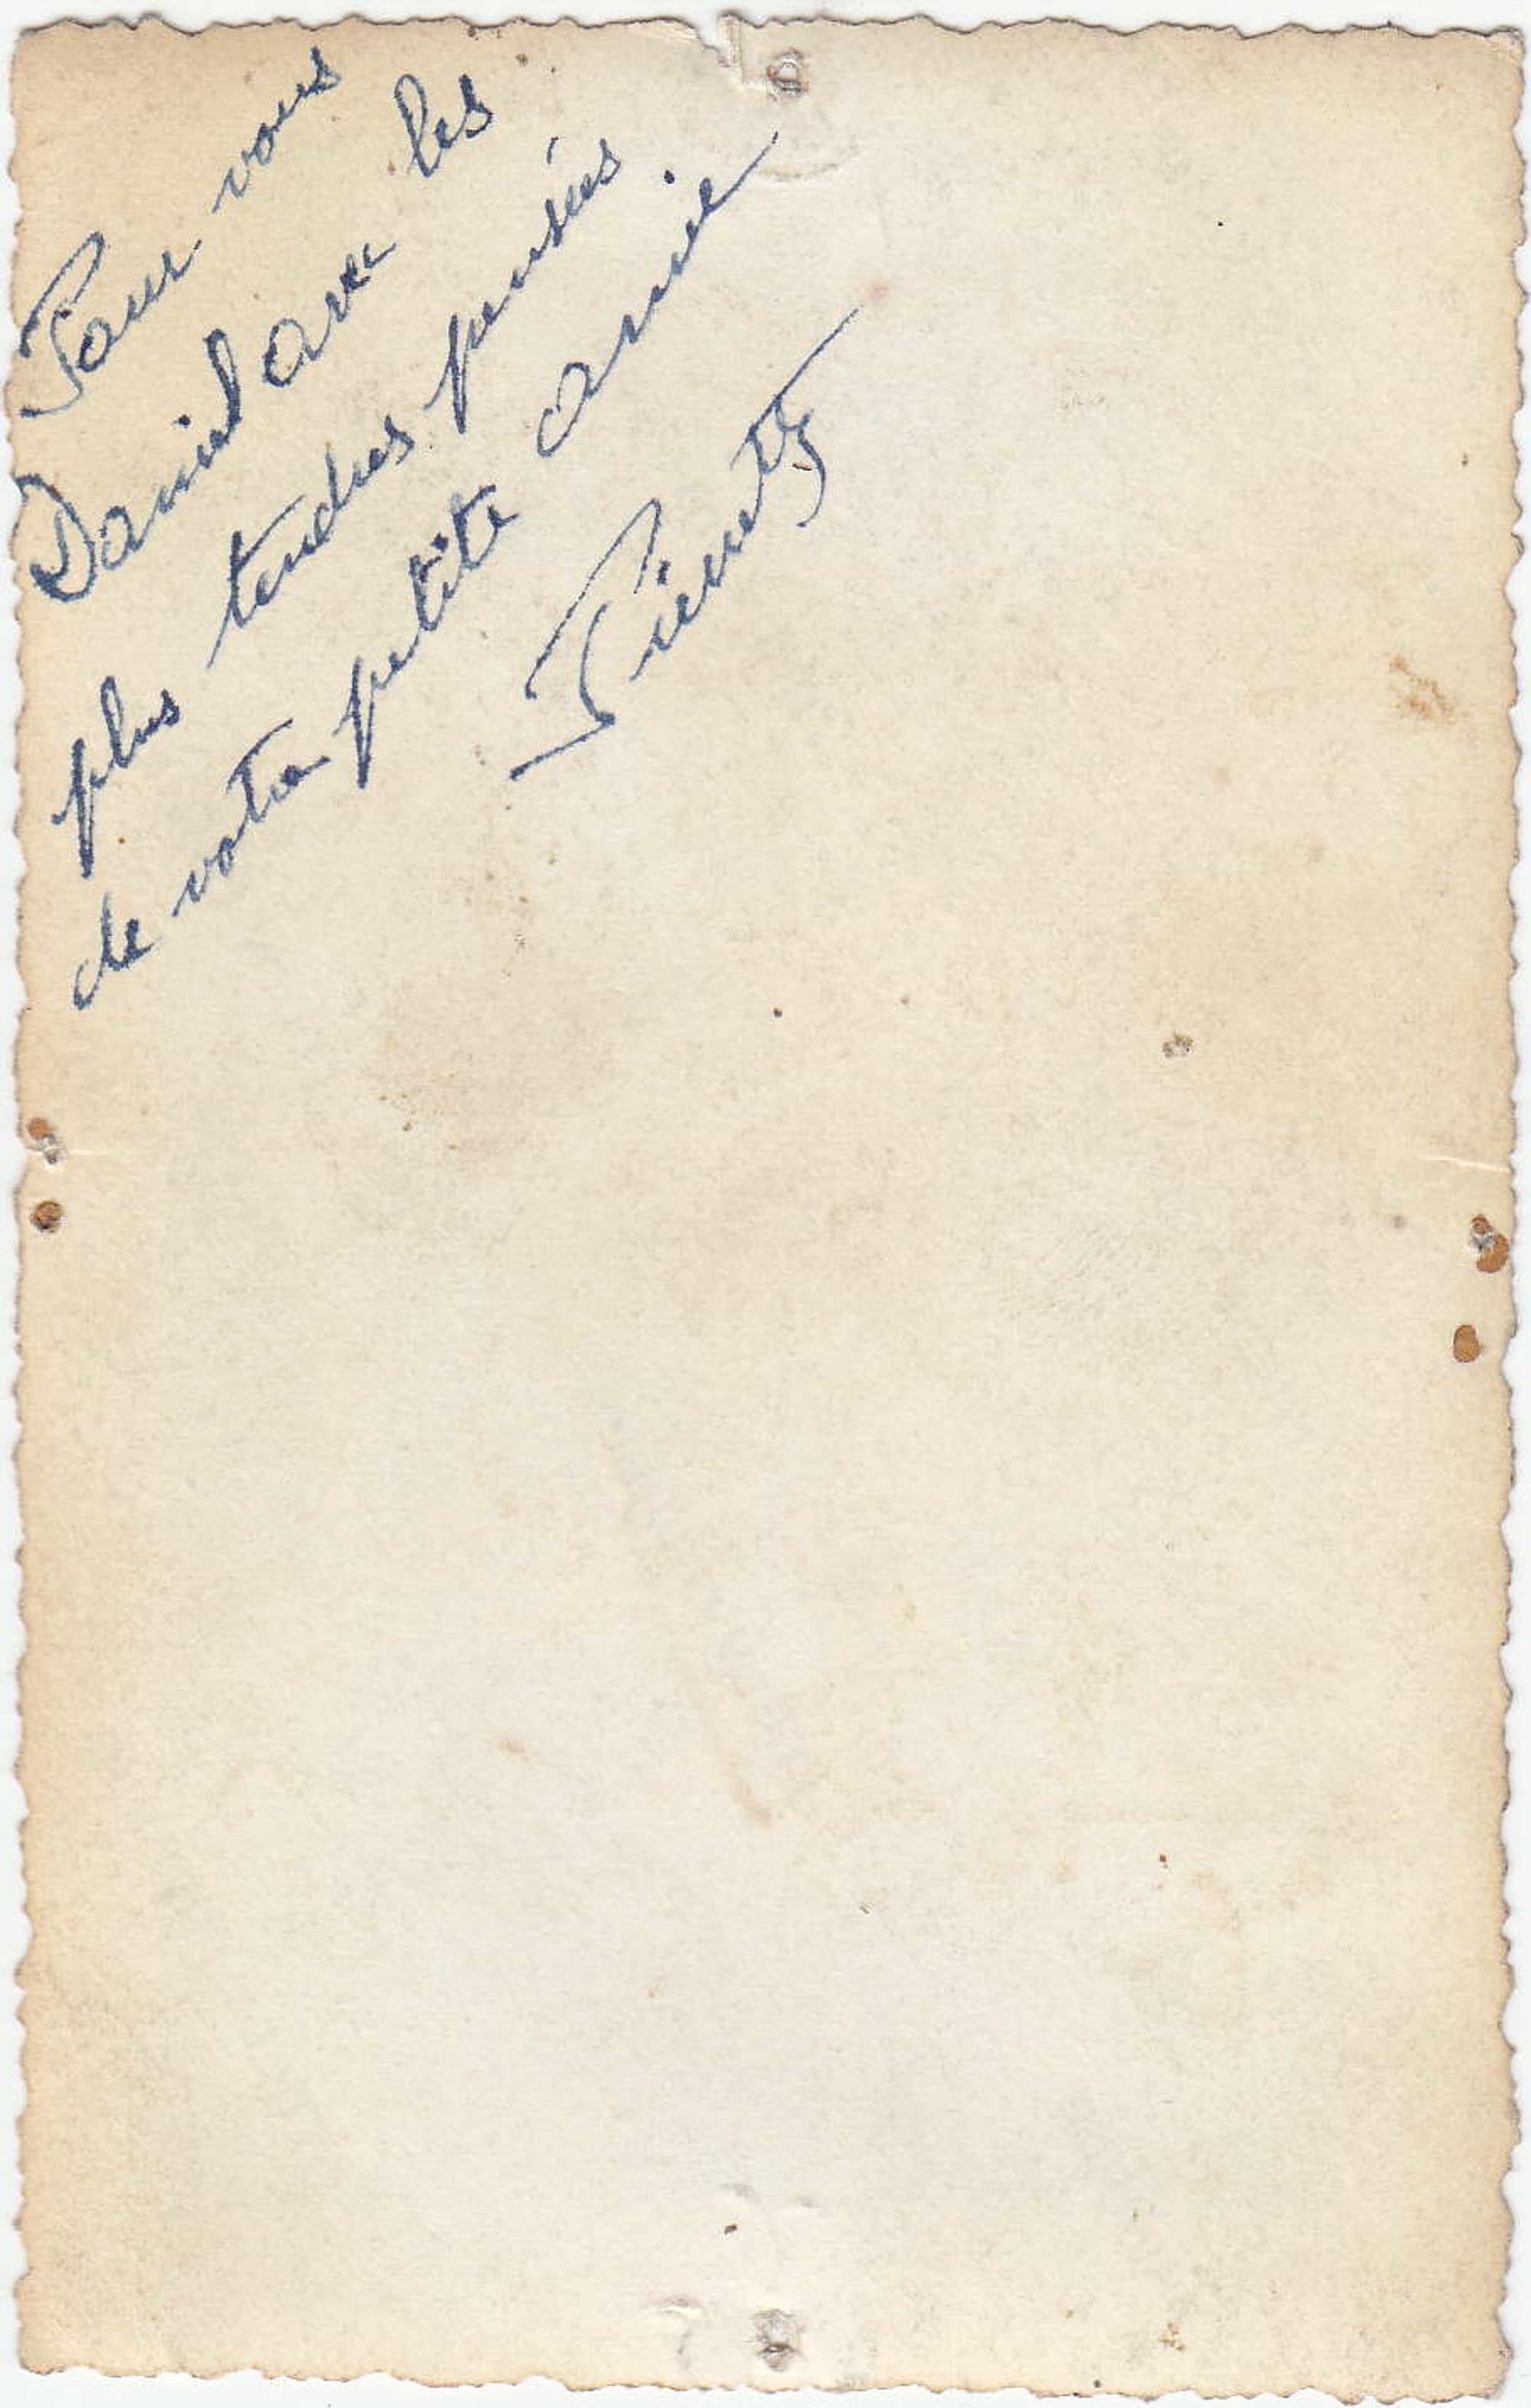 Pour vous
Daniel avec les
plus tendres pensées
de votre petite amie
Pierrette